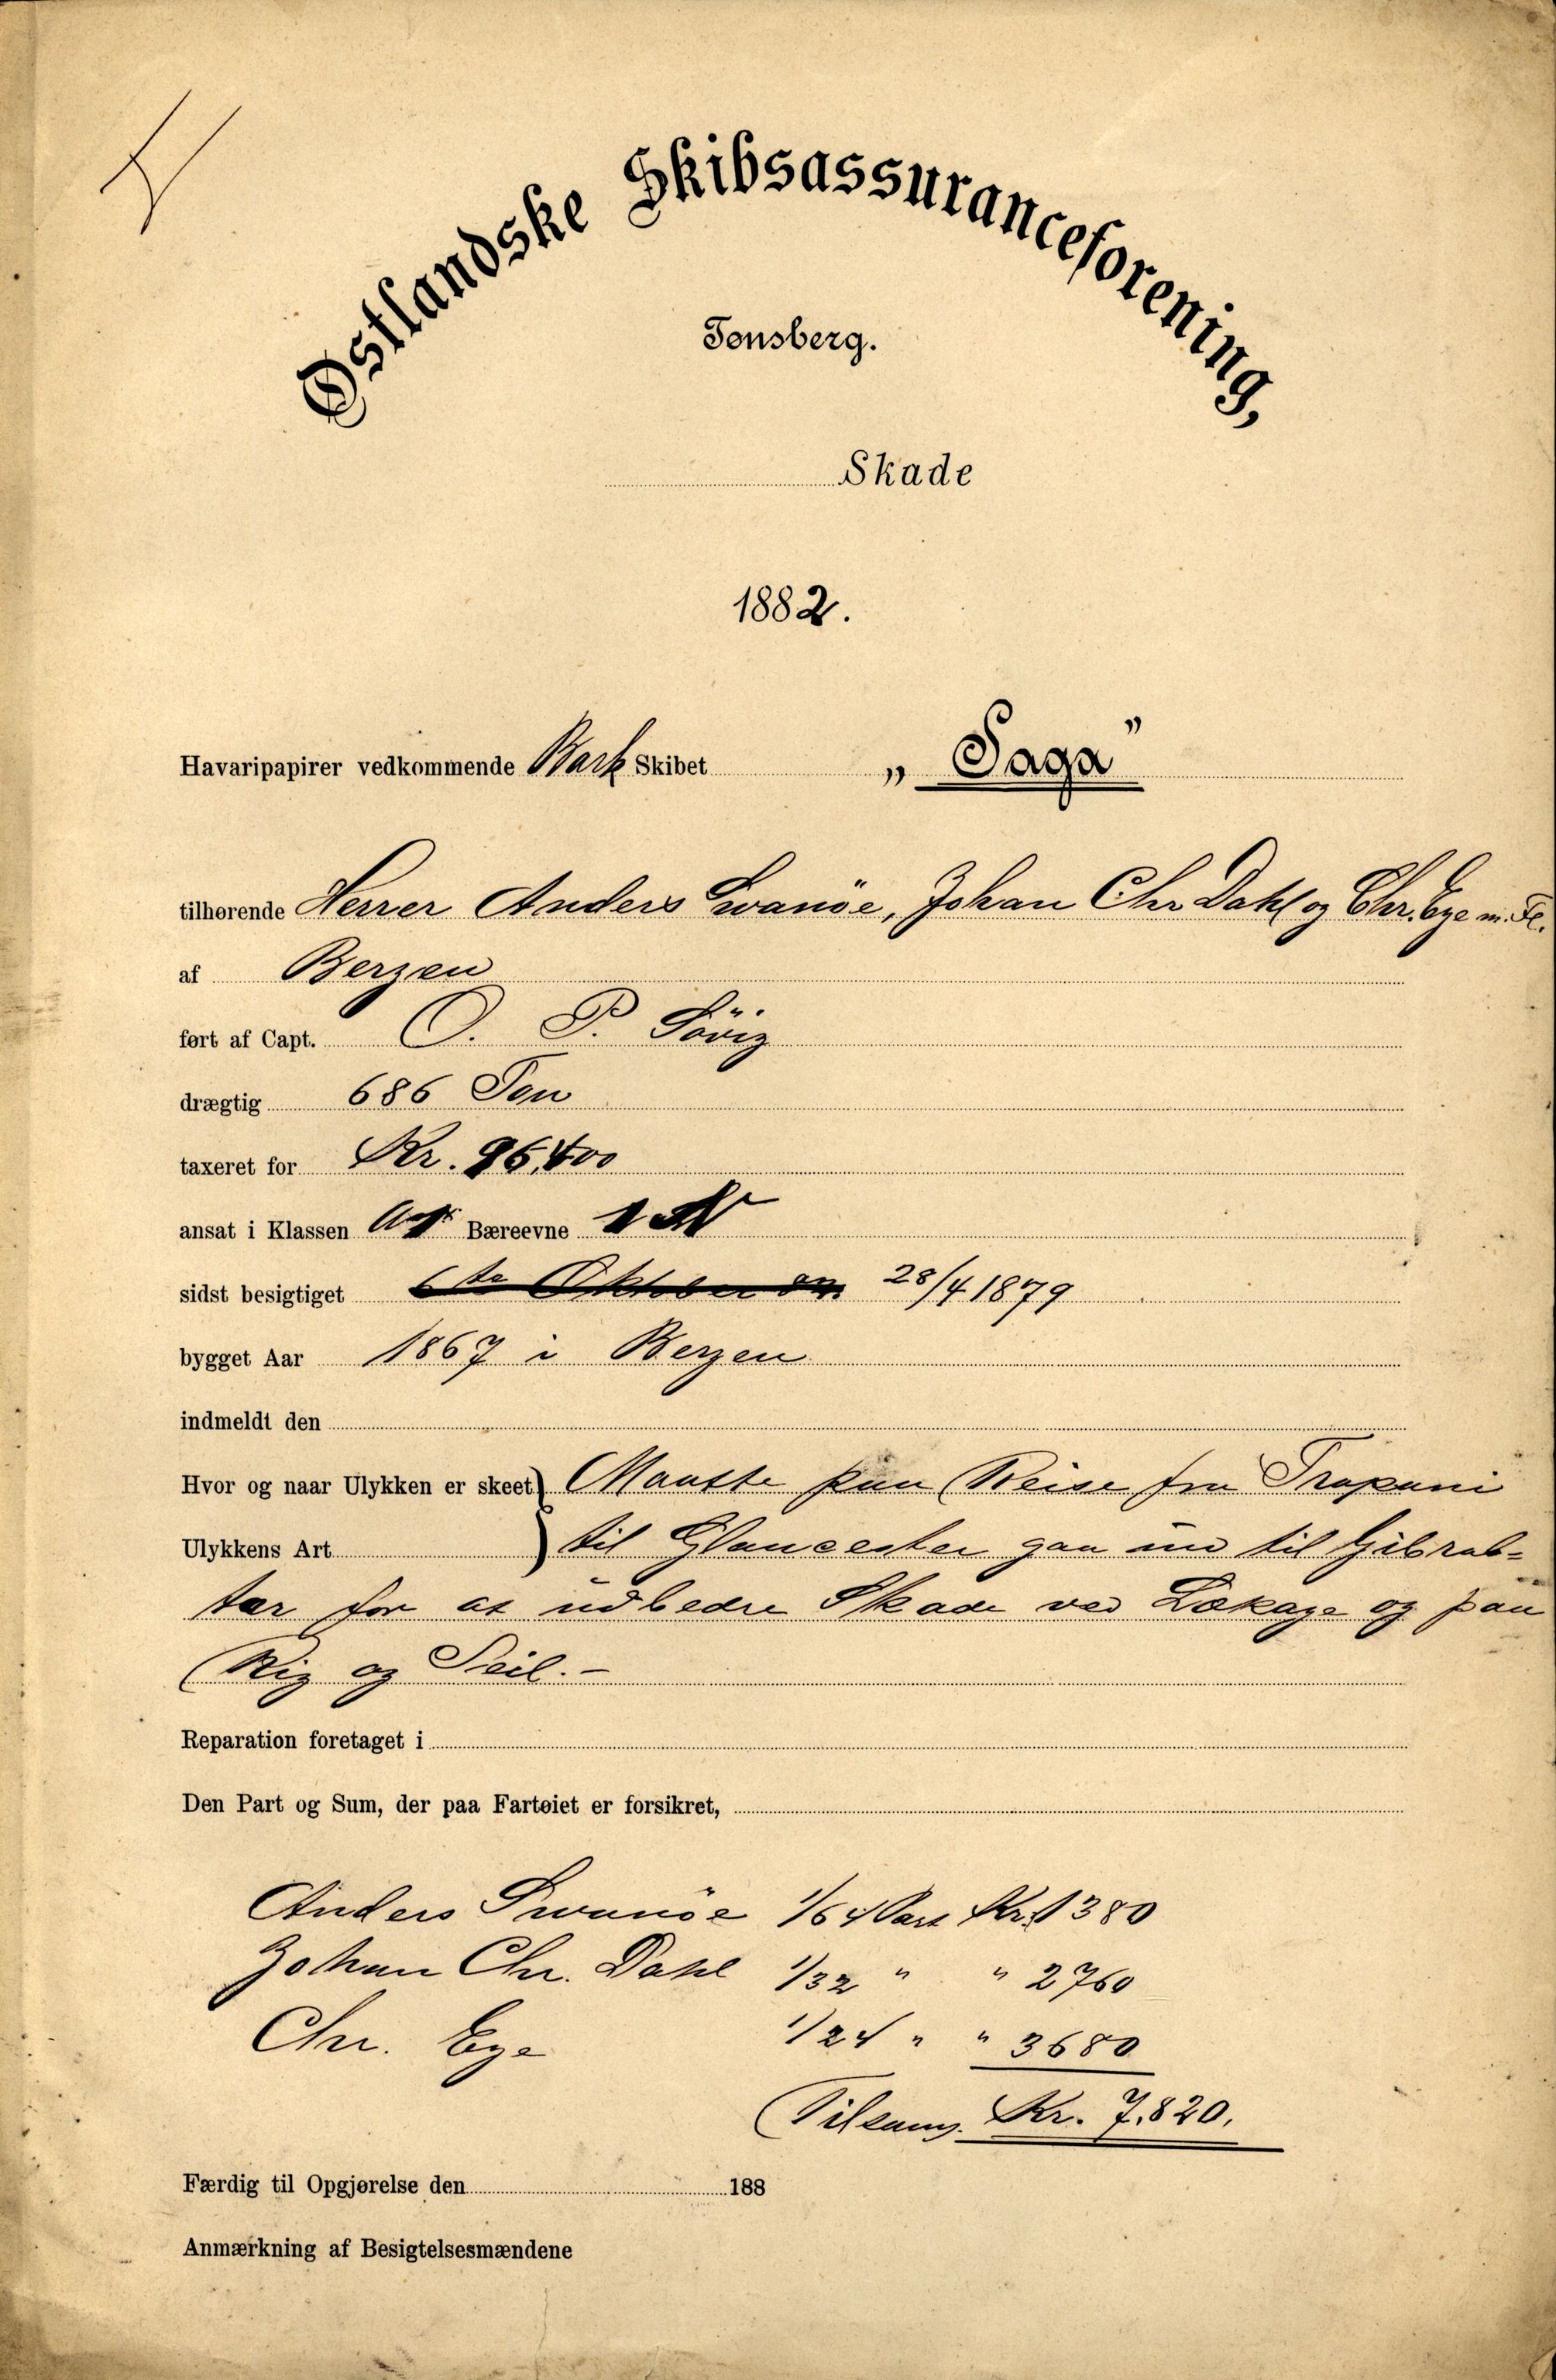 Østlandske Skibsassuranceforening,
Tønsberg.
Skade
1882.
Havaripapirer vedkommende Bark Skibet „Saga”
tilhørende Herrer Anders Svanöe, Johan Chr Dahl og Chr. Eye m. Fl.
af Bergen
ført af Capt. O. P. Lövig
drægtig 686 Ton
taxeret for Kr.
ansat i Klassen Bæreevne
sidst besigtiget 6te Oktober 28/4 1879
bygget Aar 1867 i Bergen
indmeldt den
Hvor og naar Ulykken er skeet) Maatte paa Reise fra Trapani
Ulykkens Art } til Gloucester gaa ind til Gibral=
tar for at udbedre Skade ved Lækage og paa
Rig og Seil. –
Reparation foretaget i
Den Part og Sum, der paa Fartøiet er forsikret,
Anders Svanöe 1/64 Part Kr. 1380
Johan Chr. Dahl 1/32 " " 2760
Chr. Eye 1/24 " " 3680
Tilsam. Kr. 7.820.
Færdig til Opgjørelse den 188
Anmærkning af Besigtelsesmændene